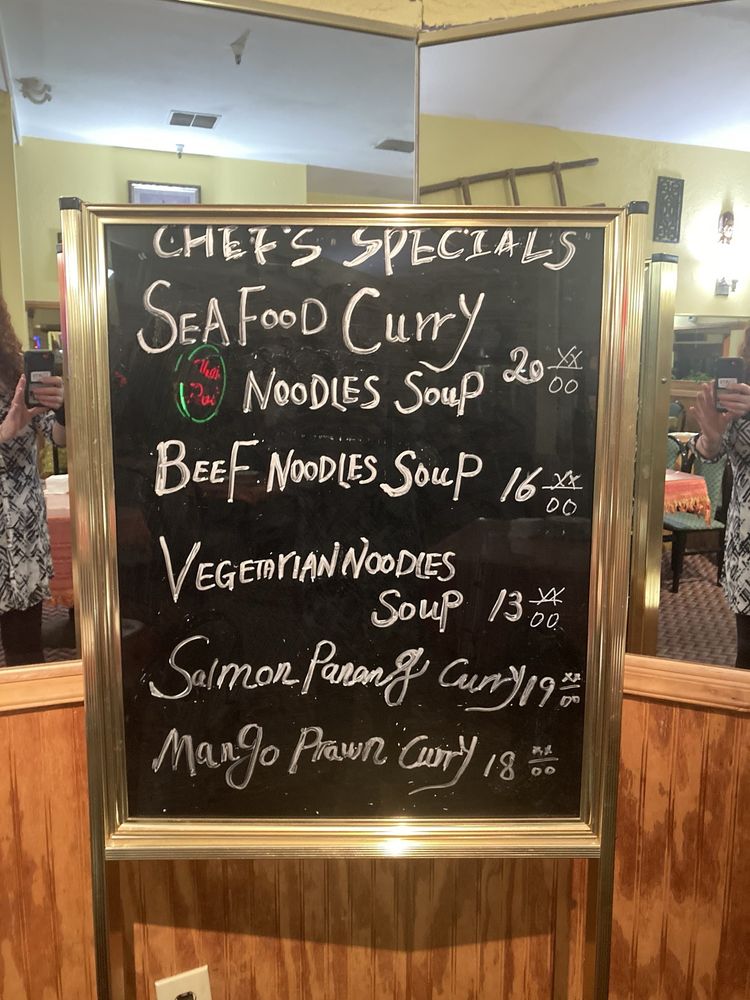 "CHEF'S SPECIALS"
SEAFOOD CURRY
NOODLES SOUP 20 XX/00
BEEF NOODLES SOUP 16 XX/00
VEGETARIAN NOODLES
SOUP 13 XX/00
Salmon Panang Curry 19 xx/00
Mango Prawn Curry 18 xx/00